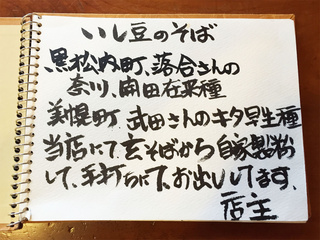 いし豆のそば
黒松内町、落合さんの
奈川、開田在来種
美幌町 武田さんのキタ早生種
当店にて玄そばから自家製粉
して、手打ちにて、お出ししてます、
店主